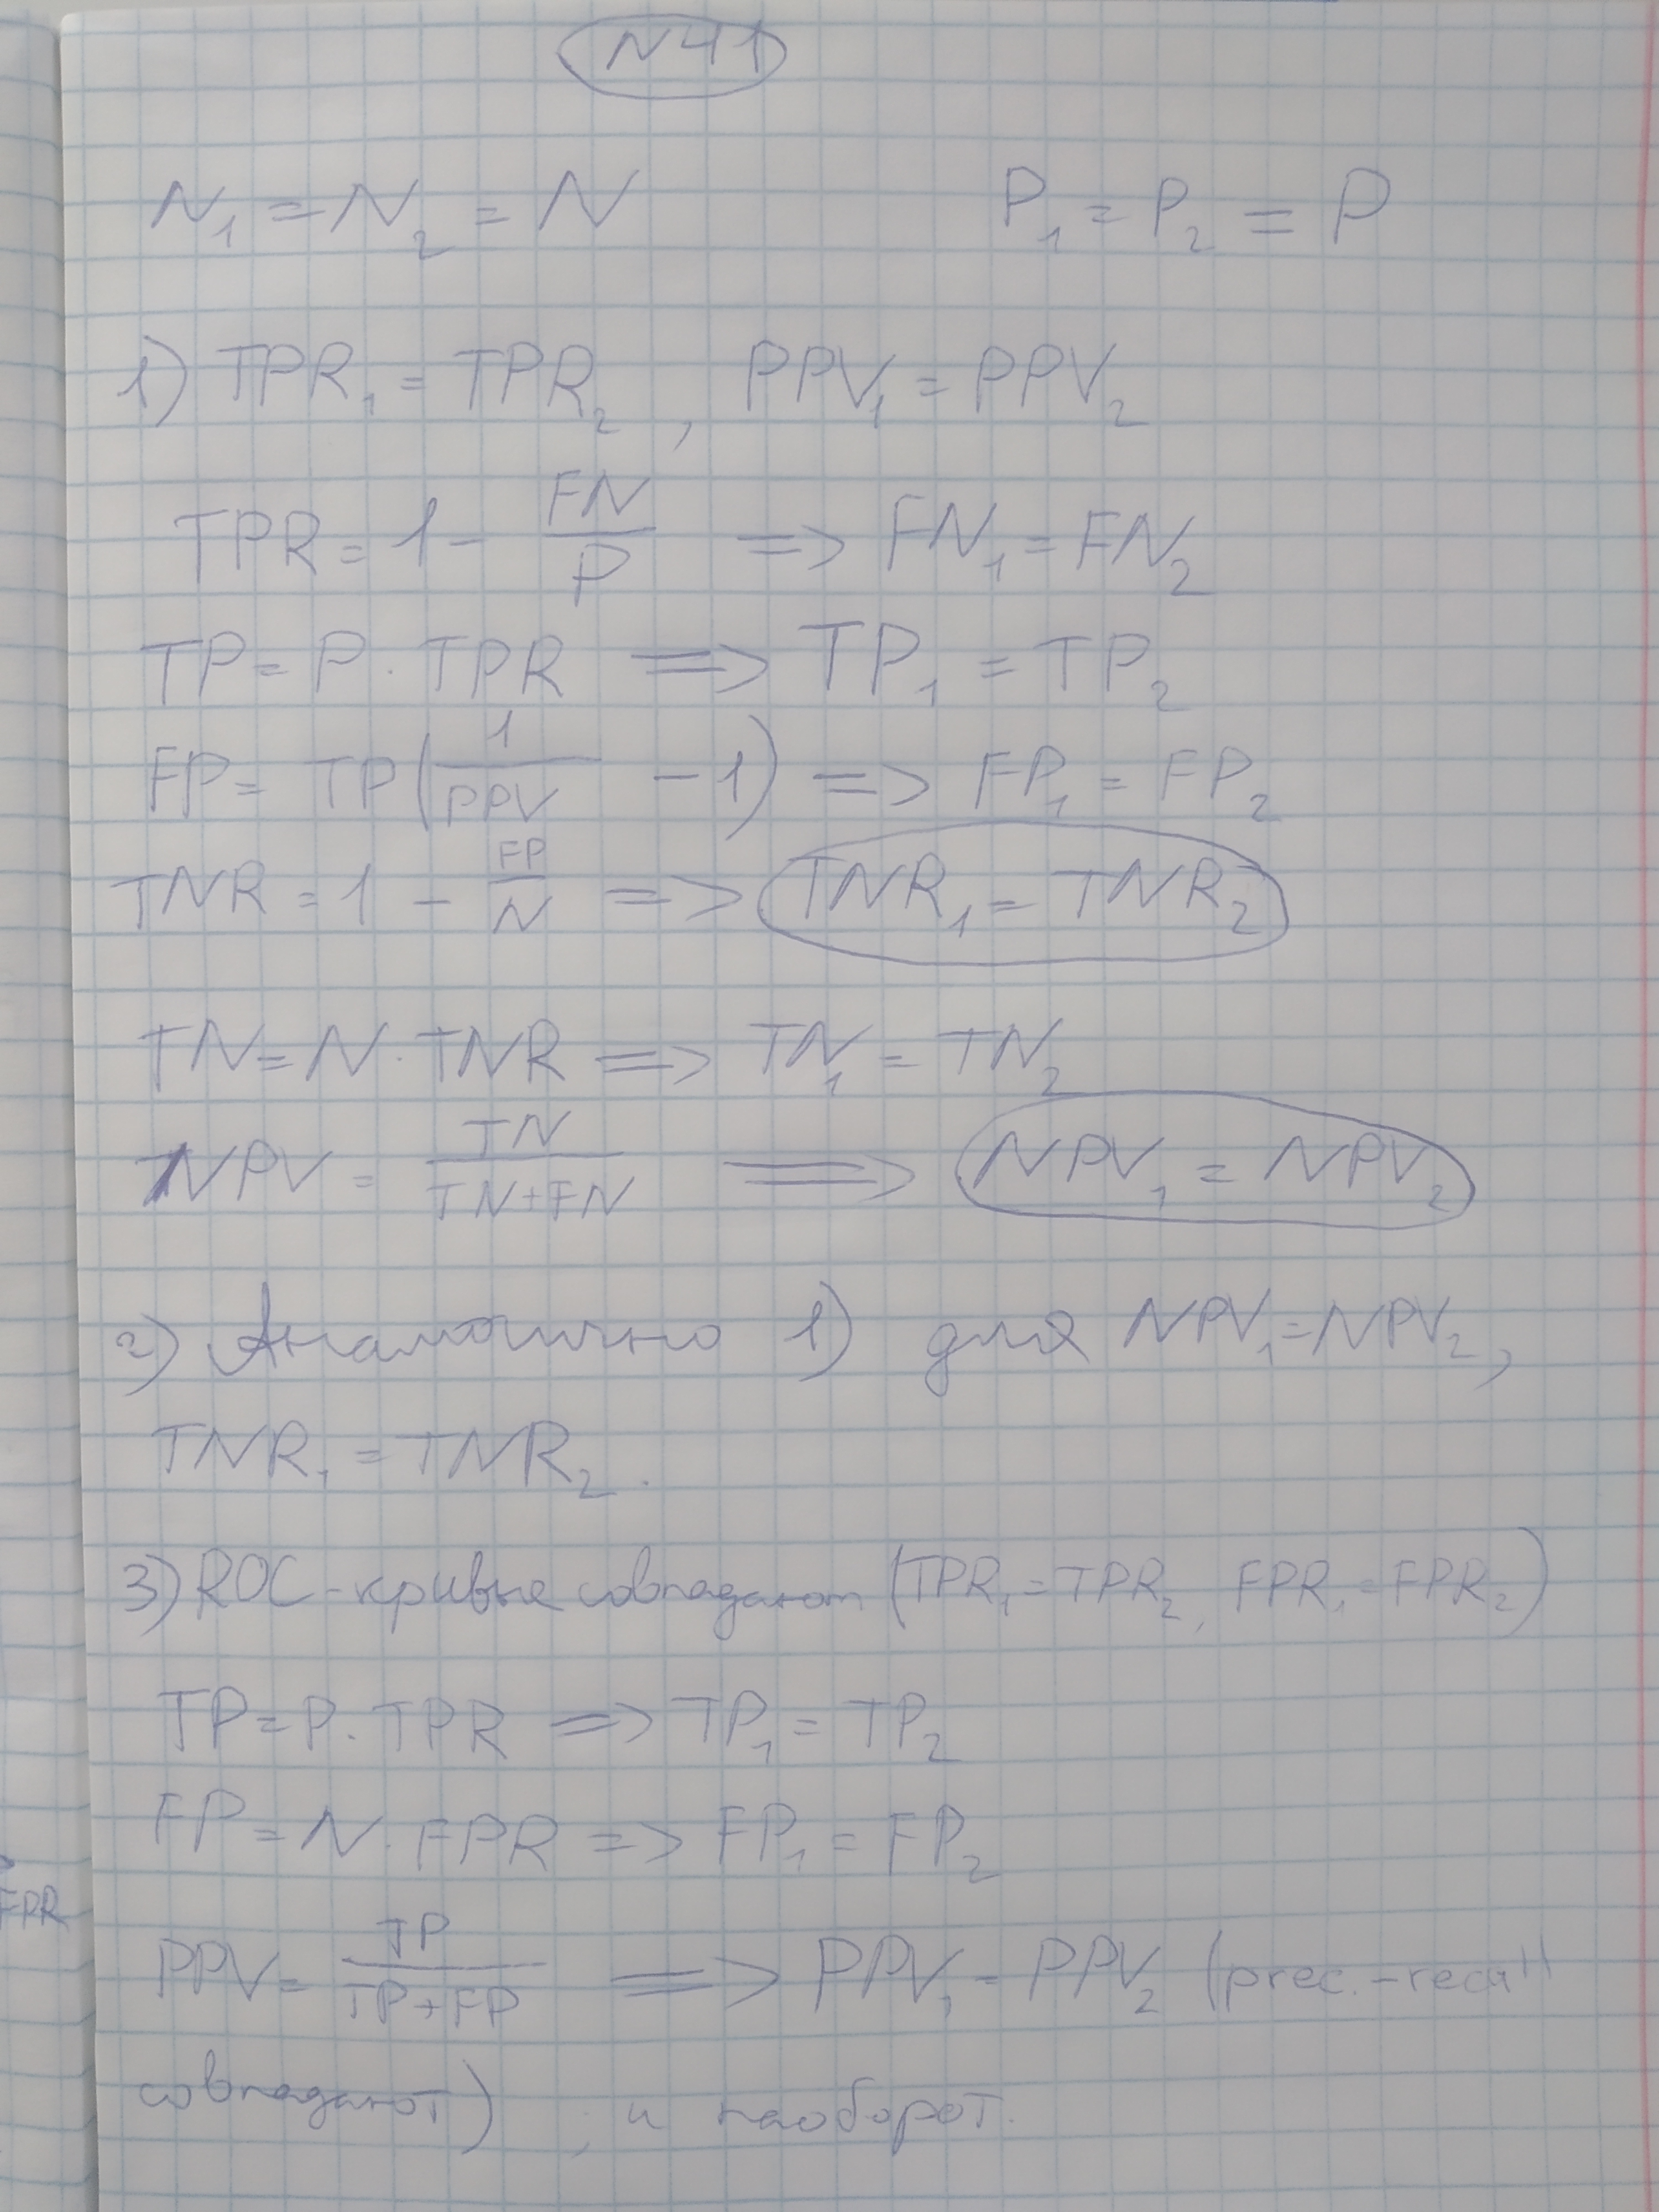 N41
N₁ = N₂ = N P₁ = P₂ = P
1) TPR₁ = TPR₂, PPV₁ = PPV₂
TPR = 1 - FN/P => FN₁ = FN₂
TP = P · TPR => TP₁ = TP₂
FP = TP(1/PPV - 1) => FP₁ = FP₂
TNR = 1 - FP/N => TNR₁ = TNR₂
TN = N · TNR => TN₁ = TN₂
NPV = TN/(TN+FN) => NPV₁ = NPV₂
2) Аналогично 1) для NPV₁ = NPV₂,
TNR₁ = TNR₂.
3) ROC-кривые совпадают (TPR₁ = TPR₂, FPR₁ = FPR₂)
TP = P · TPR => TP₁ = TP₂
FP = N · FPR => FP₁ = FP₂
FPR
PPV = TP/(TP+FP) => PPV₁ = PPV₂ (prec.-recall
совпадают), и наоборот.